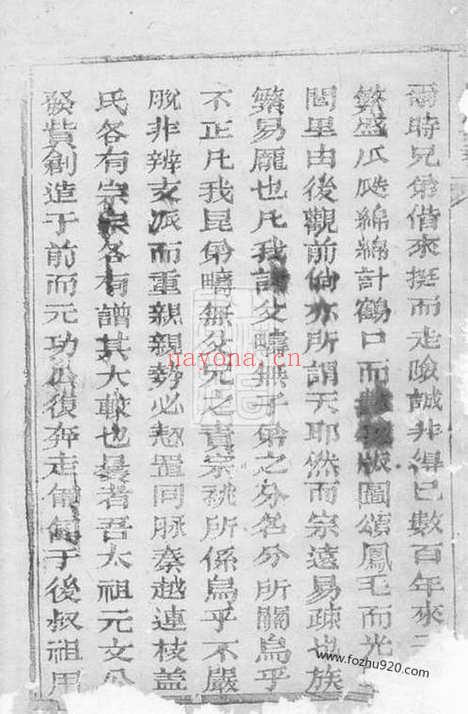 爾時兄弟偕來挺而走險誠非得已數百年來
繁盛瓜瓞綿綿計鶴口而 版圖頌鳳毛而光
閭里由後觀前倘亦所謂天耶然而宗遠易疎也族
繁易龐也凡我諸父疇無子弟之分名分所關烏乎
不正凡我昆弟疇無父兄之責宗祧所係烏乎不嚴
脫非辨支派而重親親勢必恝置同脉秦越連枝蓋
氏各有宗宗各有譜其大較也曩者吾太祖元文公
發貲創造于前而元功公復奔走 于後叔祖用
nayona.cn
www.fozhu920.com